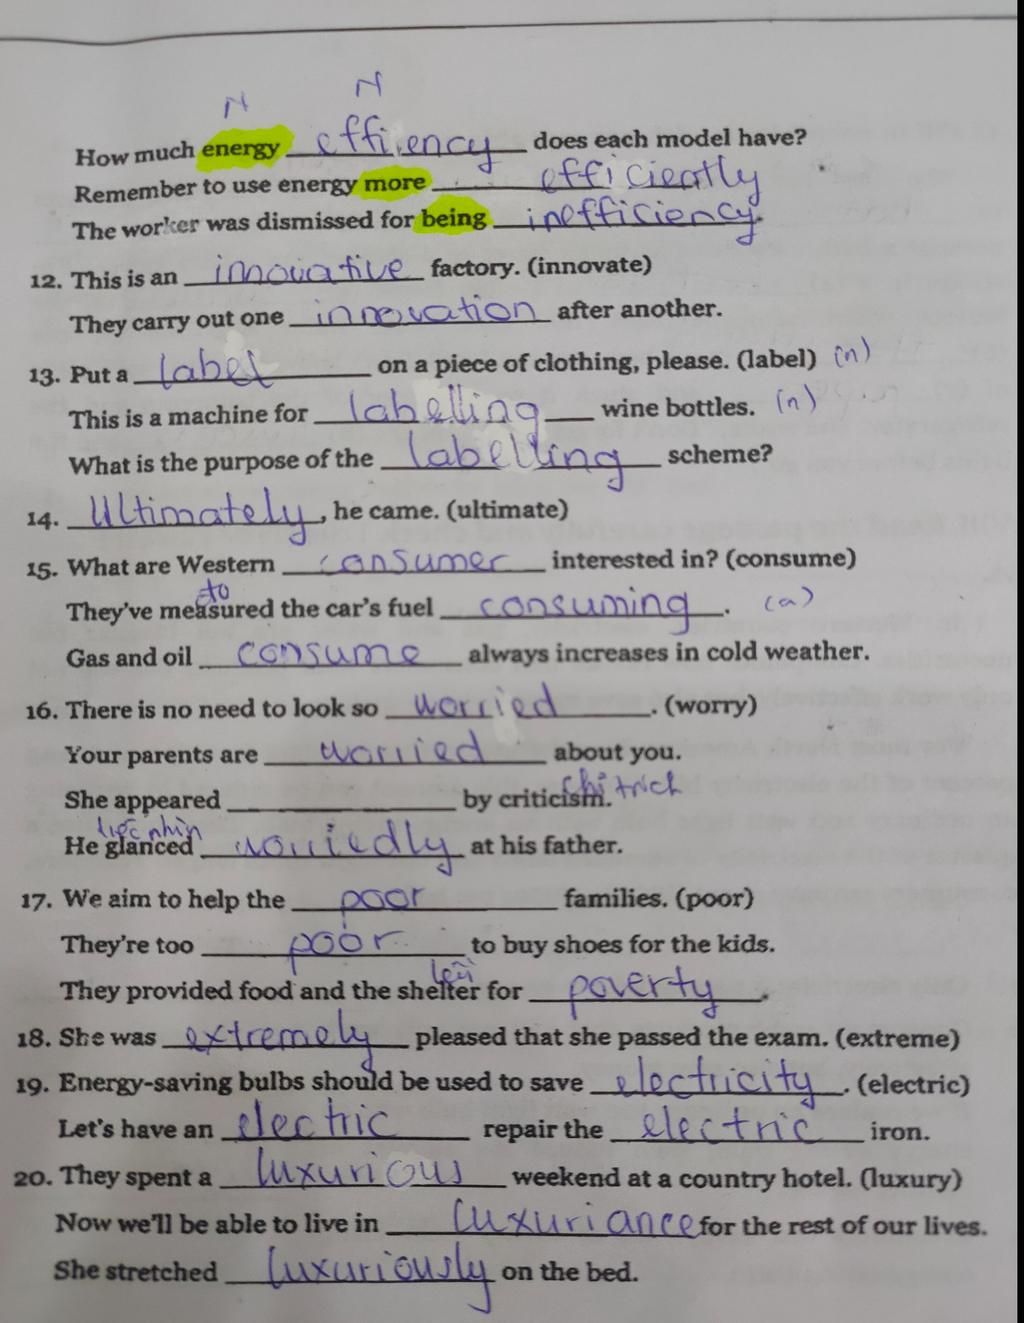 N N
How much energy effiency does each model have?
Remember to use energy more efficiently
The worker was dismissed for being inefficiency.
12. This is an innovative factory. (innovate)
They carry out one innovation after another.
13. Put a label on a piece of clothing, please. (label) (n)
This is a machine for labelling wine bottles. (n)
What is the purpose of the labelling scheme?
14. Ultimately, he came. (ultimate)
15. What are Western consumer interested in? (consume)
to
They've measured the car's fuel consuming. (a)
Gas and oil consume always increases in cold weather.
16. There is no need to look so worried. (worry)
Your parents are worried about you.
She appeared ____ by criticism. chỉ trích
liếc nhìn
He glanced worriedly at his father.
17. We aim to help the poor families. (poor)
They're too poor to buy shoes for the kids.
They provided food and the shelter for poverty.
18. She was extremely pleased that she passed the exam. (extreme)
19. Energy-saving bulbs should be used to save electricity. (electric)
Let's have an electric repair the electric iron.
20. They spent a luxurious weekend at a country hotel. (luxury)
Now we'll be able to live in luxuriance for the rest of our lives.
She stretched luxuriously on the bed.